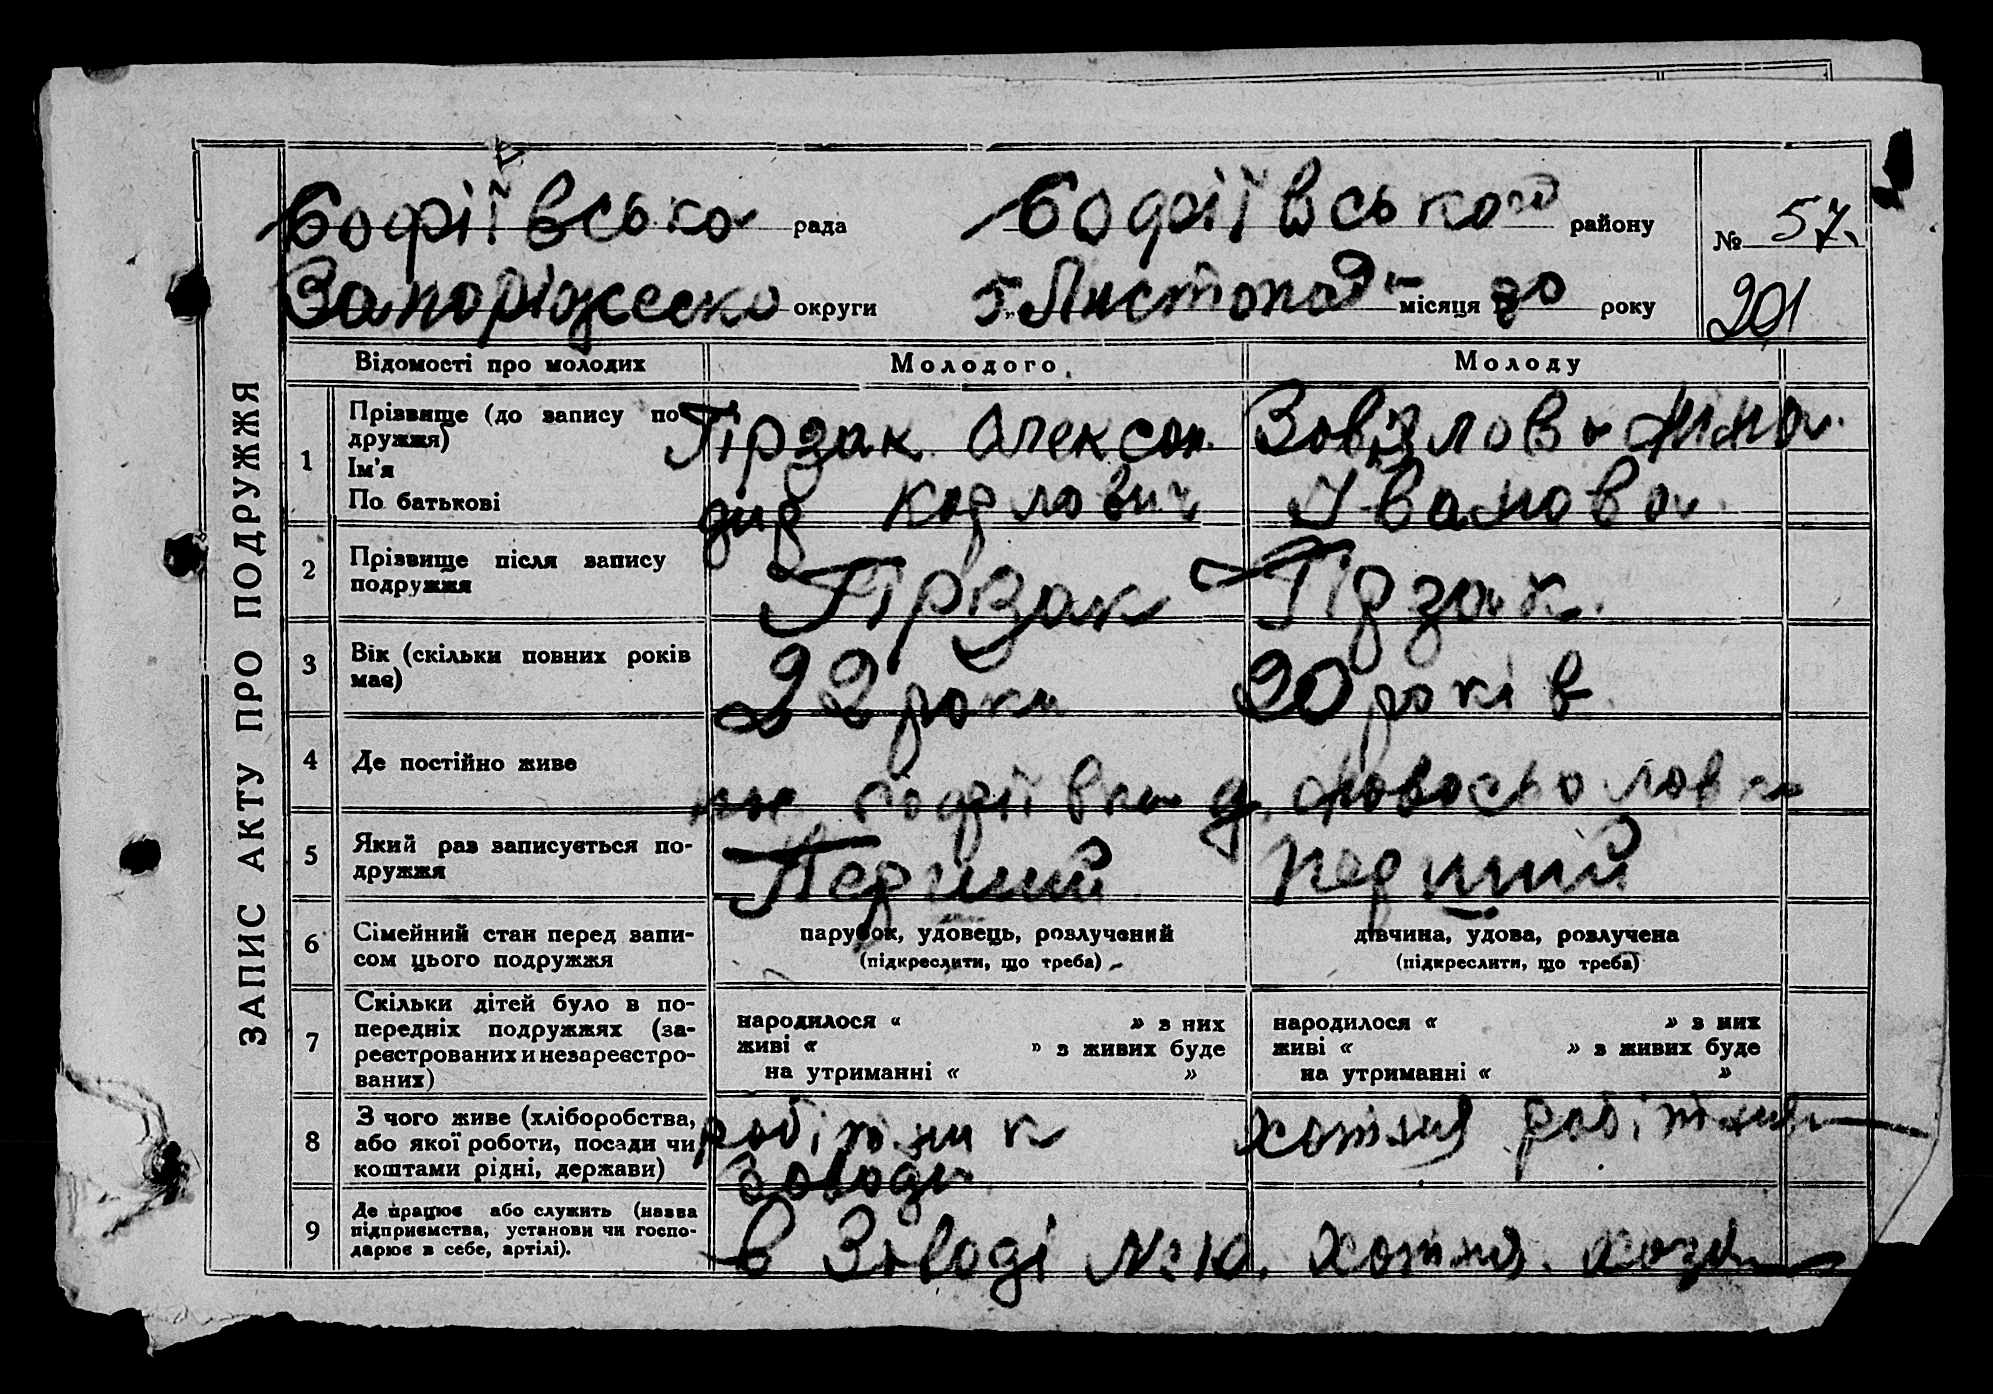 ЗАПИС АКТУ ПРО ПОДРУЖЖЯ
Софіївсько рада Софіївського району № 57
Запоріжсько округи 5 Листопад місяця 30 року 201
Відомості про молодих Молодого Молоду
1 Прізвище (до запису по дружжя)
Ім'я
По батькові
Гірзак Олексан
дир Карлович
Ніна
Іванова
2 Прізвище після запису подружжя
Гірзак Гірзак
3 Вік (скільки повних років має)
22 роки 20 років
4 Де постійно живе
Софіївка
5 Який раз записується по-
дружжя
Перший Перший
6 Сімейний стан перед запи-
сом цього подружжя
парубок, удовець, розлучений
(підкреслити, що треба)
дівчина, удова, розлучена
(підкреслити, що треба)
7 Скільки дітей було в по-
передніх подружжях (за-
реєстрованих и незареєстро-
ваних)
народилося « » з них
живі « » з живих буде
на утриманні « »
народилося « » з них
живі « » з живих буде
на утриманні « »
8 З чого живе (хліборобства,
або якої роботи, посади чи
коштами рідні, держави)
робітник
заводі
хатня робітниця
9 Де працює або служить (назва
підприємства, установи чи госпо-
дарює в себе, артілі).
в Заводі № 10. хатня